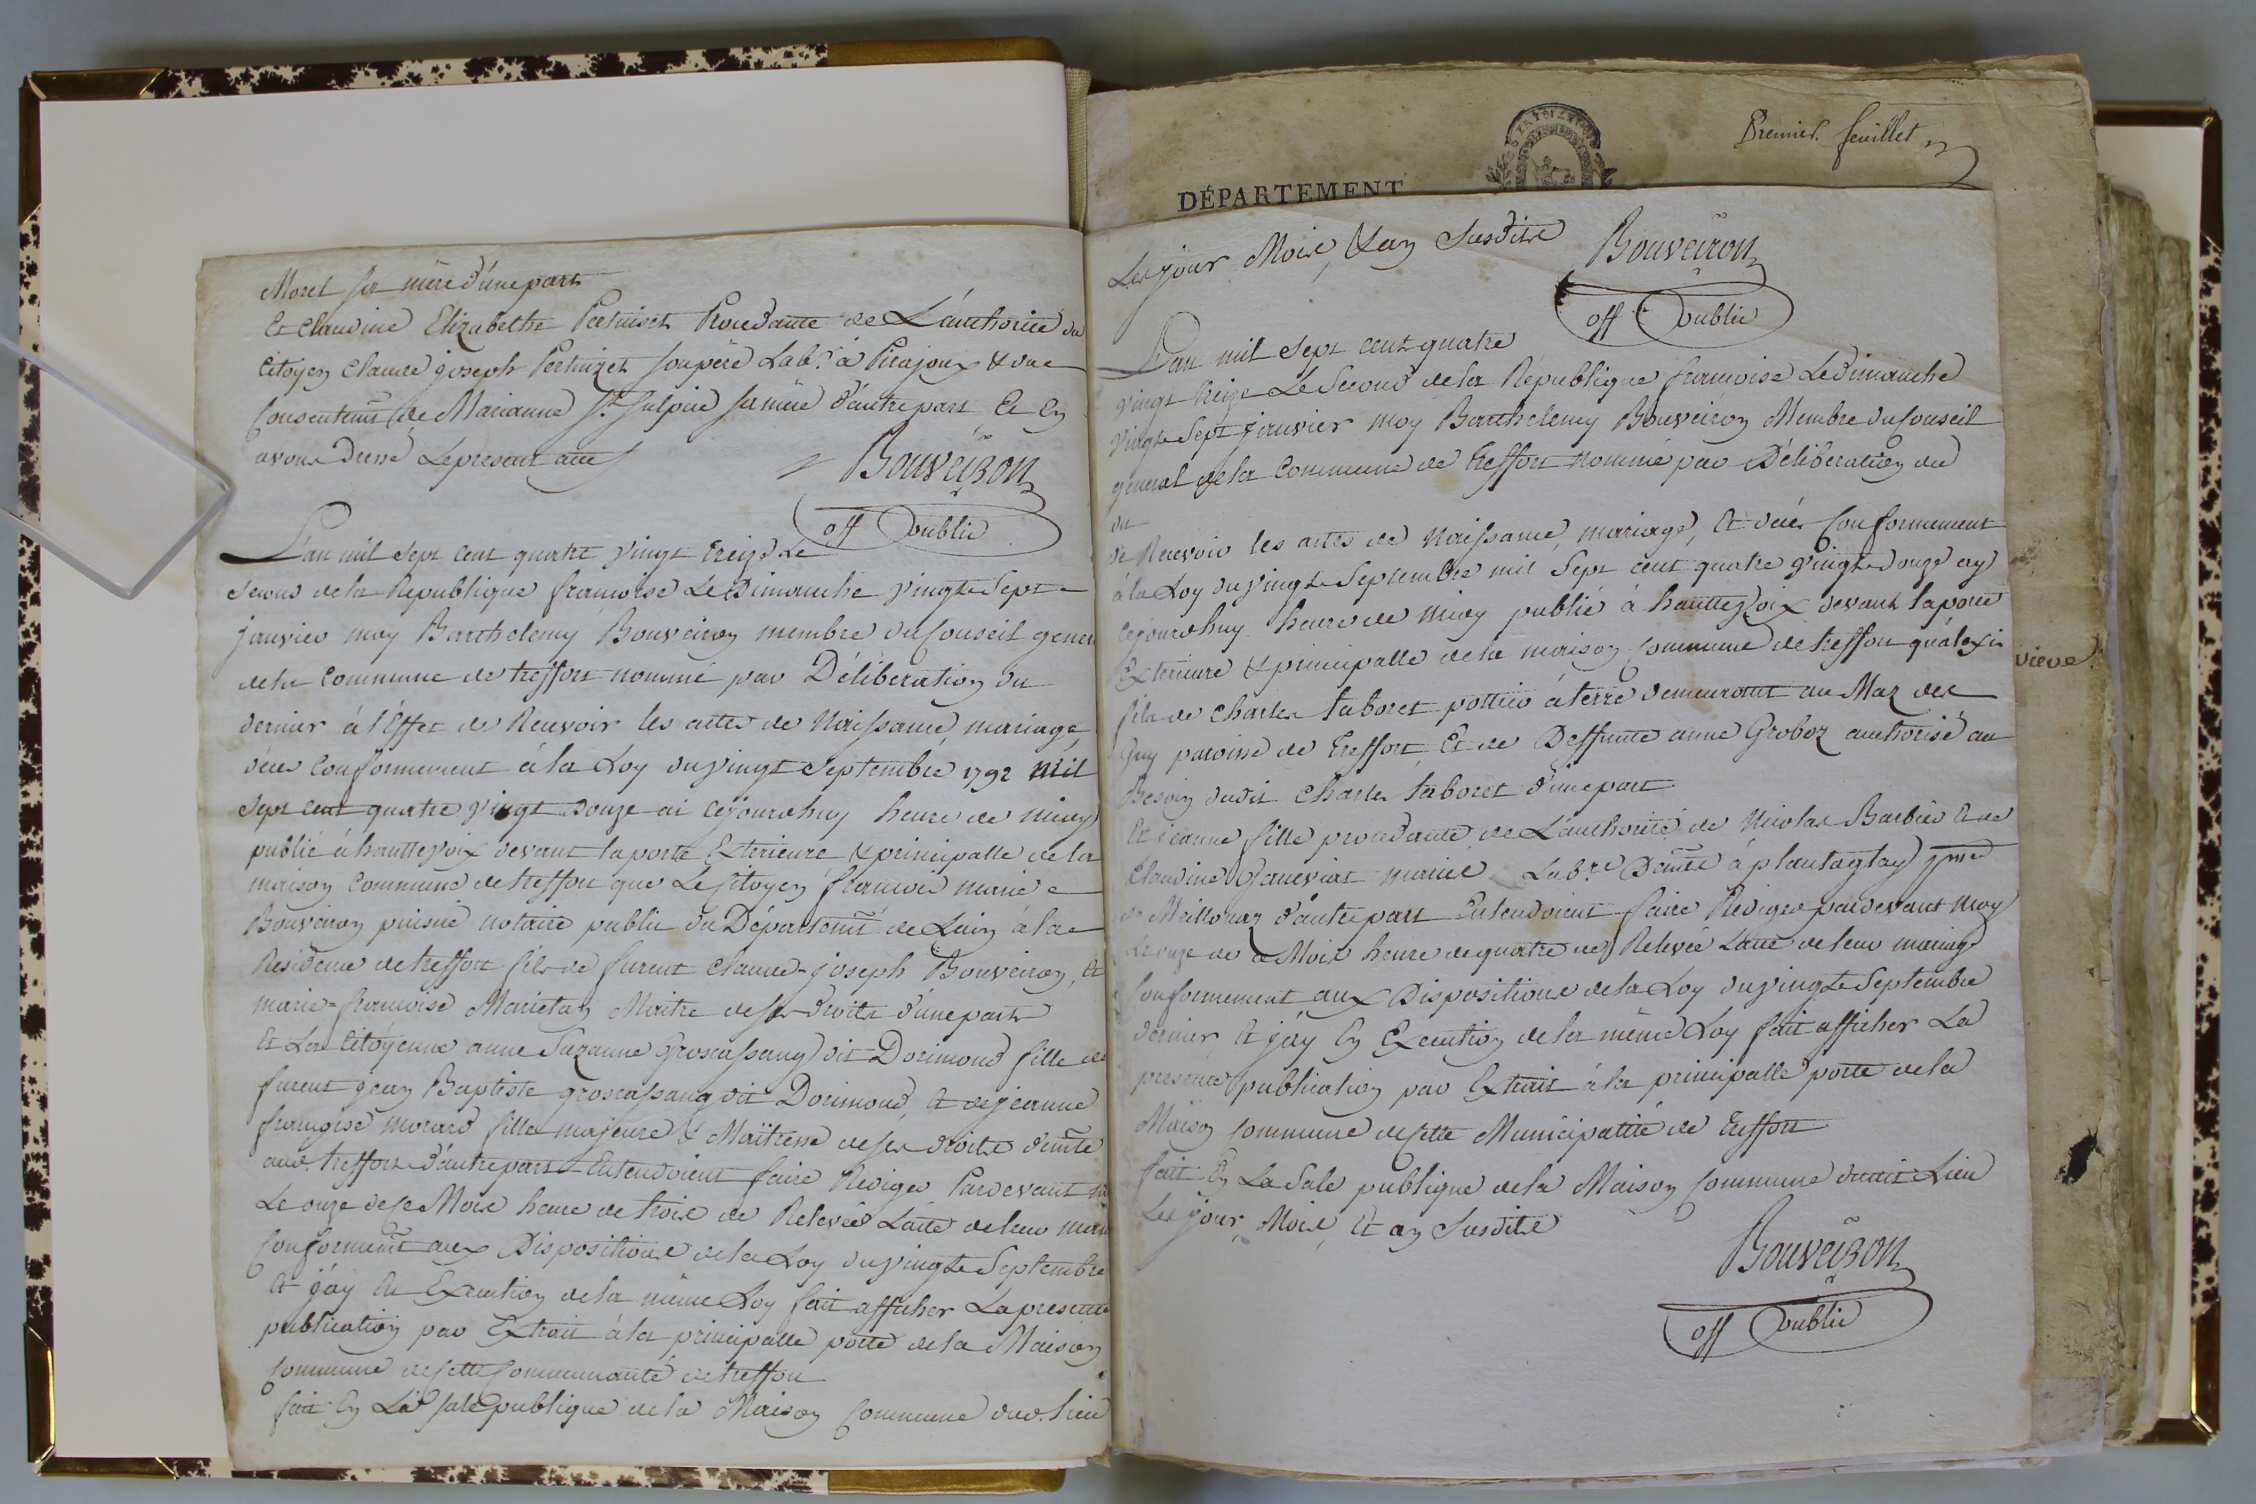 Morel sa mère d'une part
Et Claudine Elizabethe Perhuiset Procedante de L'authorite du
Citoyen Claude joseph Perhuizet son père Lab.r à Pirajoux & du
Consentemt de Marianne St. Sulpice sa mère d'autre part Et En
avons Dressé Le present acte
Bouveiron
off public
L'an mil sept cent quatre vingt treize Le
second de la Republique françoise Le Dimanche vingt Sept
janvier moy Barthelemy Bouveiron membre du Conseil gener
de la Commune de treffort nommé par Déliberation du
dernier à l'Effet de Recevoir les actes de Naissance, mariage
décès Conformement à la Loy du vingt Septembre 1792 mil
Sept cent quatre vingt Douze ai cejourdhuy heure de midy
publié à hautte voix devant la porte Exterieure & principalle de la
maison Commune de treffort que Le Citoyen françois marie
Bouveiron puisné notaire public du Départemt de Lain à la
Residence de treffort fils de furent Claude-joseph Bouveiron, Et
marie-françoise Marietan Maitre de ses droits d'une part
Et La Citoyenne anne Suzanne Groscassang dit Dorimond fille de
furent jean Baptiste groscassang dit Dorimond, Et de jeanne
françoise morard fille majeure & Maitresse de ses droits demte
aud. treffort d'autre part Entendoient faire Rediger Pardevant
Le onze de ce Mois heure de trois de Relevée L'acte de leur
Conformemt aux Dispositions de la Loy du vingt Septembre
Et j'ay En Execution de la même Loy fait afficher La presente
publication par Extrait à la principalle porte de la Maison
Commune de cette Communauté de treffort
fait En La Sale publique de la Maison Commune dud. Lieu
Premier feuillet
DÉPARTEMENT
Les jour Mois, & an Susdits
Bouveiron
off public
L'an mil Sept cent quatre
vingt treize Le Second de la République françoise Le Dimanche
vingt Sept janvier moy Barthelemy Bouveiron Membre du Conseil
general de la Commune de treffort nommé par Déliberation du
du
de Recevoir les actes de Naissance, mariage, Et décès Conformement
à la Loy du vingt Septembre mil Sept cent quatre vingt Douze ay
cejourdhuy heure de midy publié à hautte voix devant la porte
Exterieure & principalle de la maison Commune de treffort qu'alexis
fils de Charles taboret pottier à terre demeurant au Maz des
Guy paroisse de Treffort, Et de Deffunte anne Groboz authorisé au
Besoin dudit Charles taboret d'une part
Et jeanne fille procedante de L'authorité de Nicolas Barbier Et de
Claudine Genevois mariés Lab.rs à plantaglay
de Meillonaz d'autre part Entendoient faire Rediger pardevant moy
Le onze de ce Mois heure de quatre de Relevée L'acte de leur mariage
Conformement aux Dispositions de la Loy du vingt Septembre
dernier, Et j'ay En Execution de la même Loy fait afficher La
presente publication par Extrait à la principalle porte de la
Maison Commune de cette Municipalité de Treffort
fait En La Sale publique de la Maison Commune dudit Lieu
Les jour, Mois, Et an Susdits
Bouveiron
off public
vieve